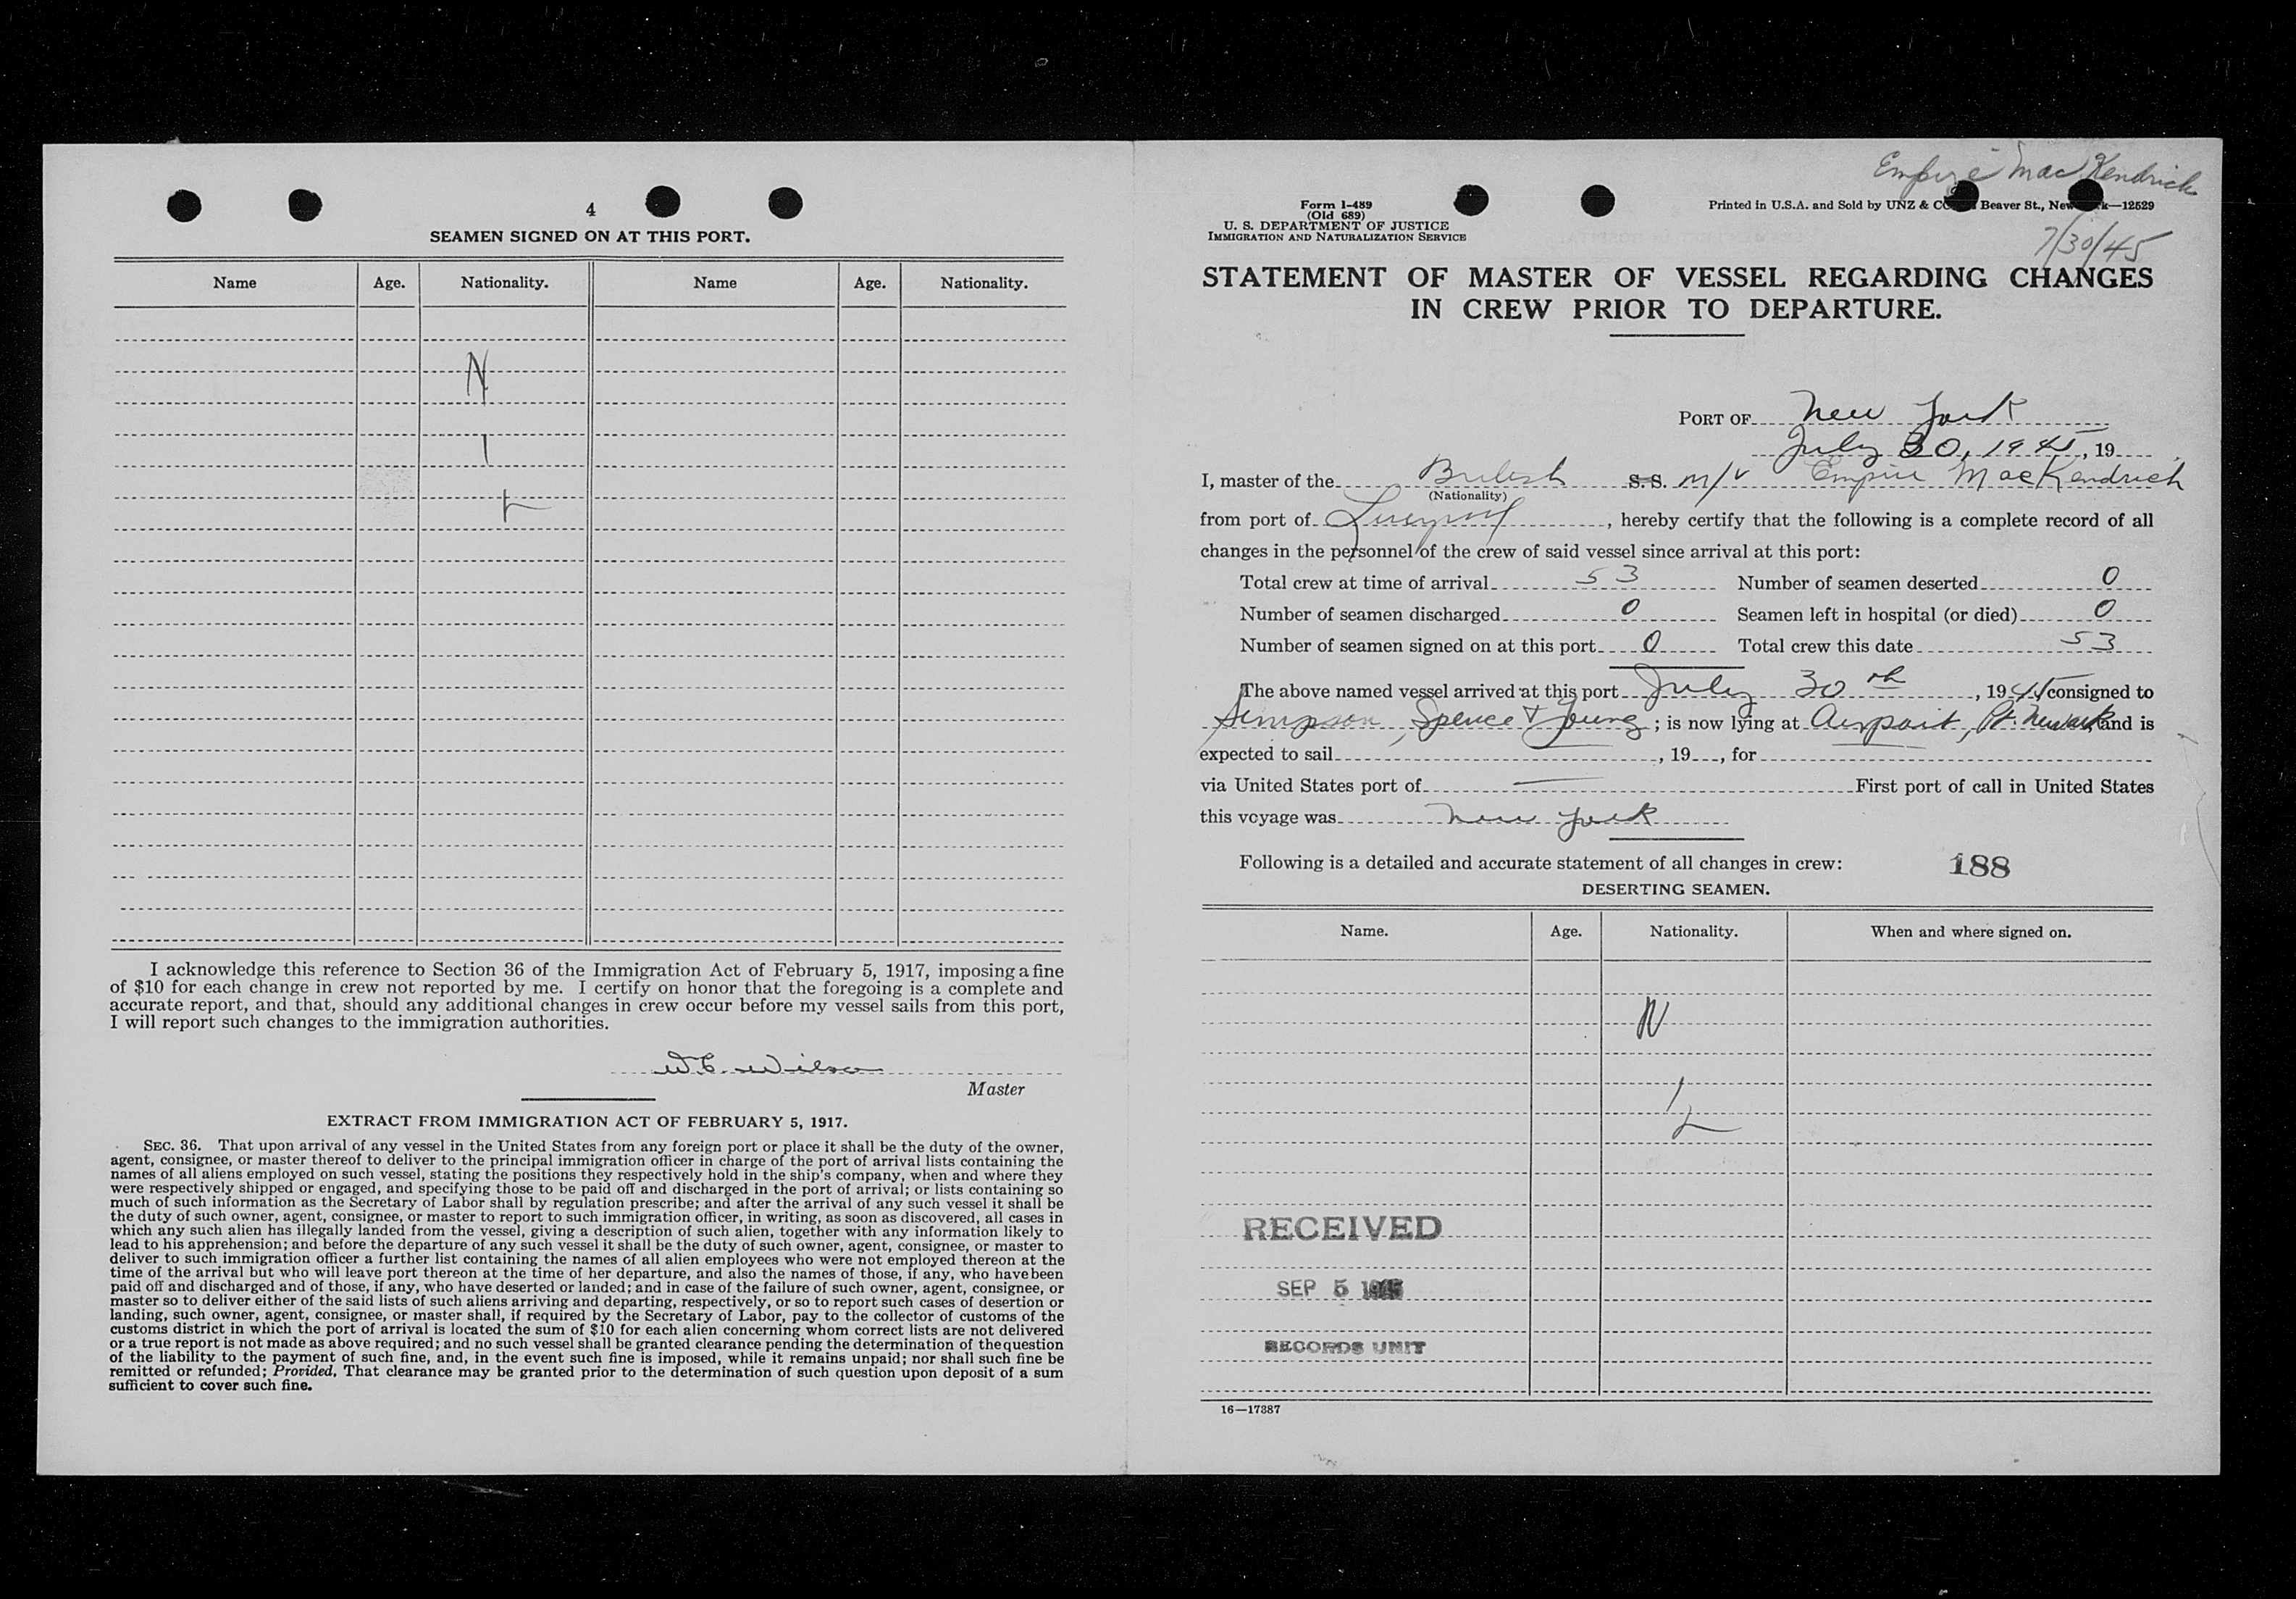 4
SEAMEN SIGNED ON AT THIS PORT.
Name Age. Nationality. Name Age. Nationality.
N
I
L
I acknowledge this reference to Section 36 of the Immigration Act of February 5, 1917, imposing a fine
of $10 for each change in crew not reported by me. I certify on honor that the foregoing is a complete and
accurate report, and that, should any additional changes in crew occur before my vessel sails from this port,
I will report such changes to the immigration authorities.
W. C. Wilson
Master
EXTRACT FROM IMMIGRATION ACT OF FEBRUARY 5, 1917.
SEC. 36. That upon arrival of any vessel in the United States from any foreign port or place it shall be the duty of the owner,
agent, consignee, or master thereof to deliver to the principal immigration officer in charge of the port of arrival lists containing the
names of all aliens employed on such vessel, stating the positions they respectively hold in the ship's company, when and where they
were respectively shipped or engaged, and specifying those to be paid off and discharged in the port of arrival; or lists containing so
much of such information as the Secretary of Labor shall by regulation prescribe; and after the arrival of any such vessel it shall be
the duty of such owner, agent, consignee, or master to report to such immigration officer, in writing, as soon as discovered, all cases in
which any such alien has illegally landed from the vessel, giving a description of such alien, together with any information likely to
lead to his apprehension; and before the departure of any such vessel it shall be the duty of such owner, agent, consignee, or master to
deliver to such immigration officer a further list containing the names of all alien employees who were not employed thereon at the
time of the arrival but who will leave port thereon at the time of her departure, and also the names of those, if any, who have been
paid off and discharged and of those, if any, who have deserted or landed; and in case of the failure of such owner, agent, consignee, or
master so to deliver either of the said lists of such aliens arriving and departing, respectively, or so to report such cases of desertion or
landing, such owner, agent, consignee, or master shall, if required by the Secretary of Labor, pay to the collector of customs of the
customs district in which the port of arrival is located the sum of $10 for each alien concerning whom correct lists are not delivered
or a true report is not made as above required; and no such vessel shall be granted clearance pending the determination of the question
of the liability to the payment of such fine, and, in the event such fine is imposed, while it remains unpaid; nor shall such fine be
remitted or refunded; Provided, That clearance may be granted prior to the determination of such question upon deposit of a sum
sufficient to cover such fine.
Empire MacKendrick
Form I-489
(Old 689)
U. S. DEPARTMENT OF JUSTICE
IMMIGRATION AND NATURALIZATION SERVICE
Printed in U.S.A. and Sold by UNZ & CO. Beaver St., New k—12529
7/30/45
STATEMENT OF MASTER OF VESSEL REGARDING CHANGES
IN CREW PRIOR TO DEPARTURE.
PORT OF New York
July 30, 1945, 19
I, master of the British S. S. M/V Empire MacKendrick
(Nationality)
from port of Liverpool, hereby certify that the following is a complete record of all
changes in the personnel of the crew of said vessel since arrival at this port:
Total crew at time of arrival 53 Number of seamen deserted 0
Number of seamen discharged 0 Seamen left in hospital (or died) 0
Number of seamen signed on at this port 0 Total crew this date 53
The above named vessel arrived at this port July 30th, 1945, consigned to
Simpson, Spence & Young; is now lying at Airport, Pt. Newark, and is
expected to sail , 19 , for
via United States port of — First port of call in United States
this voyage was New York
Following is a detailed and accurate statement of all changes in crew: 188
DESERTING SEAMEN.
Name. Age. Nationality. When and where signed on.
N
I
L
RECEIVED
SEP 5 1945
RECORDS UNIT
16—17387